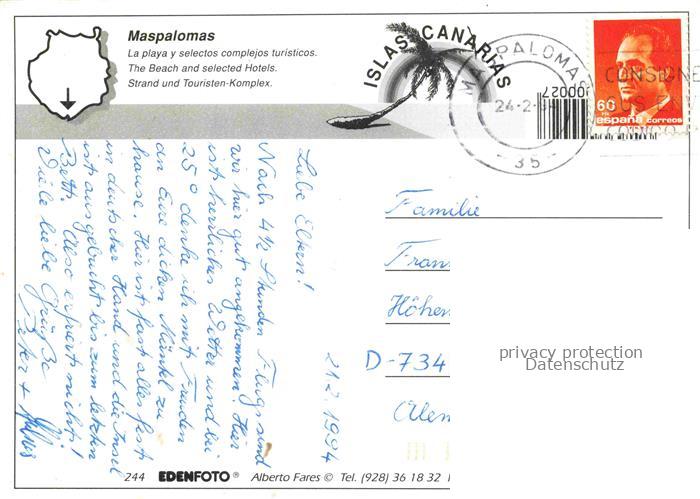 Maspalomas
La playa y selectos complejos turísticos.
The Beach and selected Hotels.
Strand und Touristen-Komplex.
ISLAS CANARIAS
MASPALOMAS
24-2-94
-35-
00027
60
españa correos
CONSIGNE
SUS ENV
CODIGO
21.2.1994
Liebe Eltern!
Nach 4½ Stunden Flug sind
wir hier gut angekommen. Hier
ist herrliches Wetter und bei
25° denke ich mit Freuden
an Eure dicken Mäntel zu
hause. Hier ist fast alles fest
in deutscher Hand und die Insel
ist ausgebucht bis zum letzten
Bett. Also erfriert nicht!
Viele liebe Grüße
Peter +
Familie
Fran
Höhen
D-734
privacy protection
Datenschutz
244 EDENFOTO® Alberto Fares © Tel. (928) 36 18 32